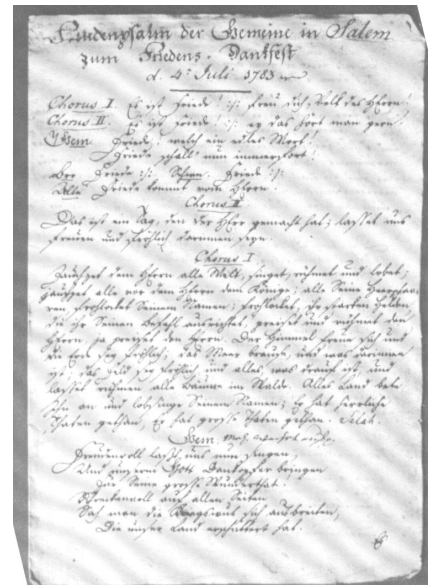 Freudenpsalm der Gemeine in Salem
zum Friedens-Dankfest
d. 4t Juli 1783
Chorus I. Es ist Friede! :/: freu dich, Volk des HErrn!
Chorus II. Es ist Friede! :/: o das hört man gern!
Gem. Friede! welch ein edles Wort!
Friede schall nun immerfort!
Friede :/: Friede :/:
Alle Friede kommt vom HErrn!
Chorus II.
Das ist ein Tag, den der HErr gemacht hat; lasset uns
freuen und fröhlich darinnen seyn.
Chorus I.
Jauchzet dem HErrn alle Welt, singet, rühmet und lobet;
jauchzet alle vor dem HErrn dem Könige; alle Seine Heerschaa-
ren frohlocket Seinem Namen; frohlocket, ihr starken Helden,
die ihr Seinen Befehl ausrichtet, preiset und rühmet den
HErrn, ja preiset den HErrn. Der Himmel freue sich und
die Erde sey fröhlich, das Meer brause, und was darinnen
ist; das Feld sey fröhlich und alles, was drauf ist, und
lasset rühmen alle Bäume im Walde. Alles Land bete
Ihn an und lobsinge Seinem Namen; Er hat herrliche
Thaten gethan, Er hat grosse Thaten gethan. Sela.
Gem.
Freudenvoll lasst uns nun singen,
Und unserm Gott Dankopfer bringen
Seine grosse Wunderthat.
Schreckenvoll auf allen Seiten
Sah man die Kriegswut sich ausbreiten,
Die unser Land erschüttert hat.